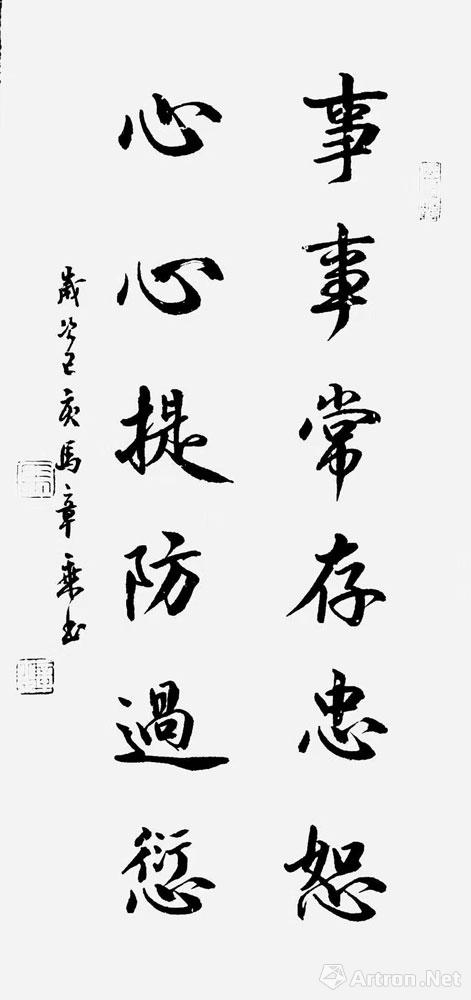 事事常存忠恕
心心提防過愆
歲次己亥馬章乘书
Artron.Net